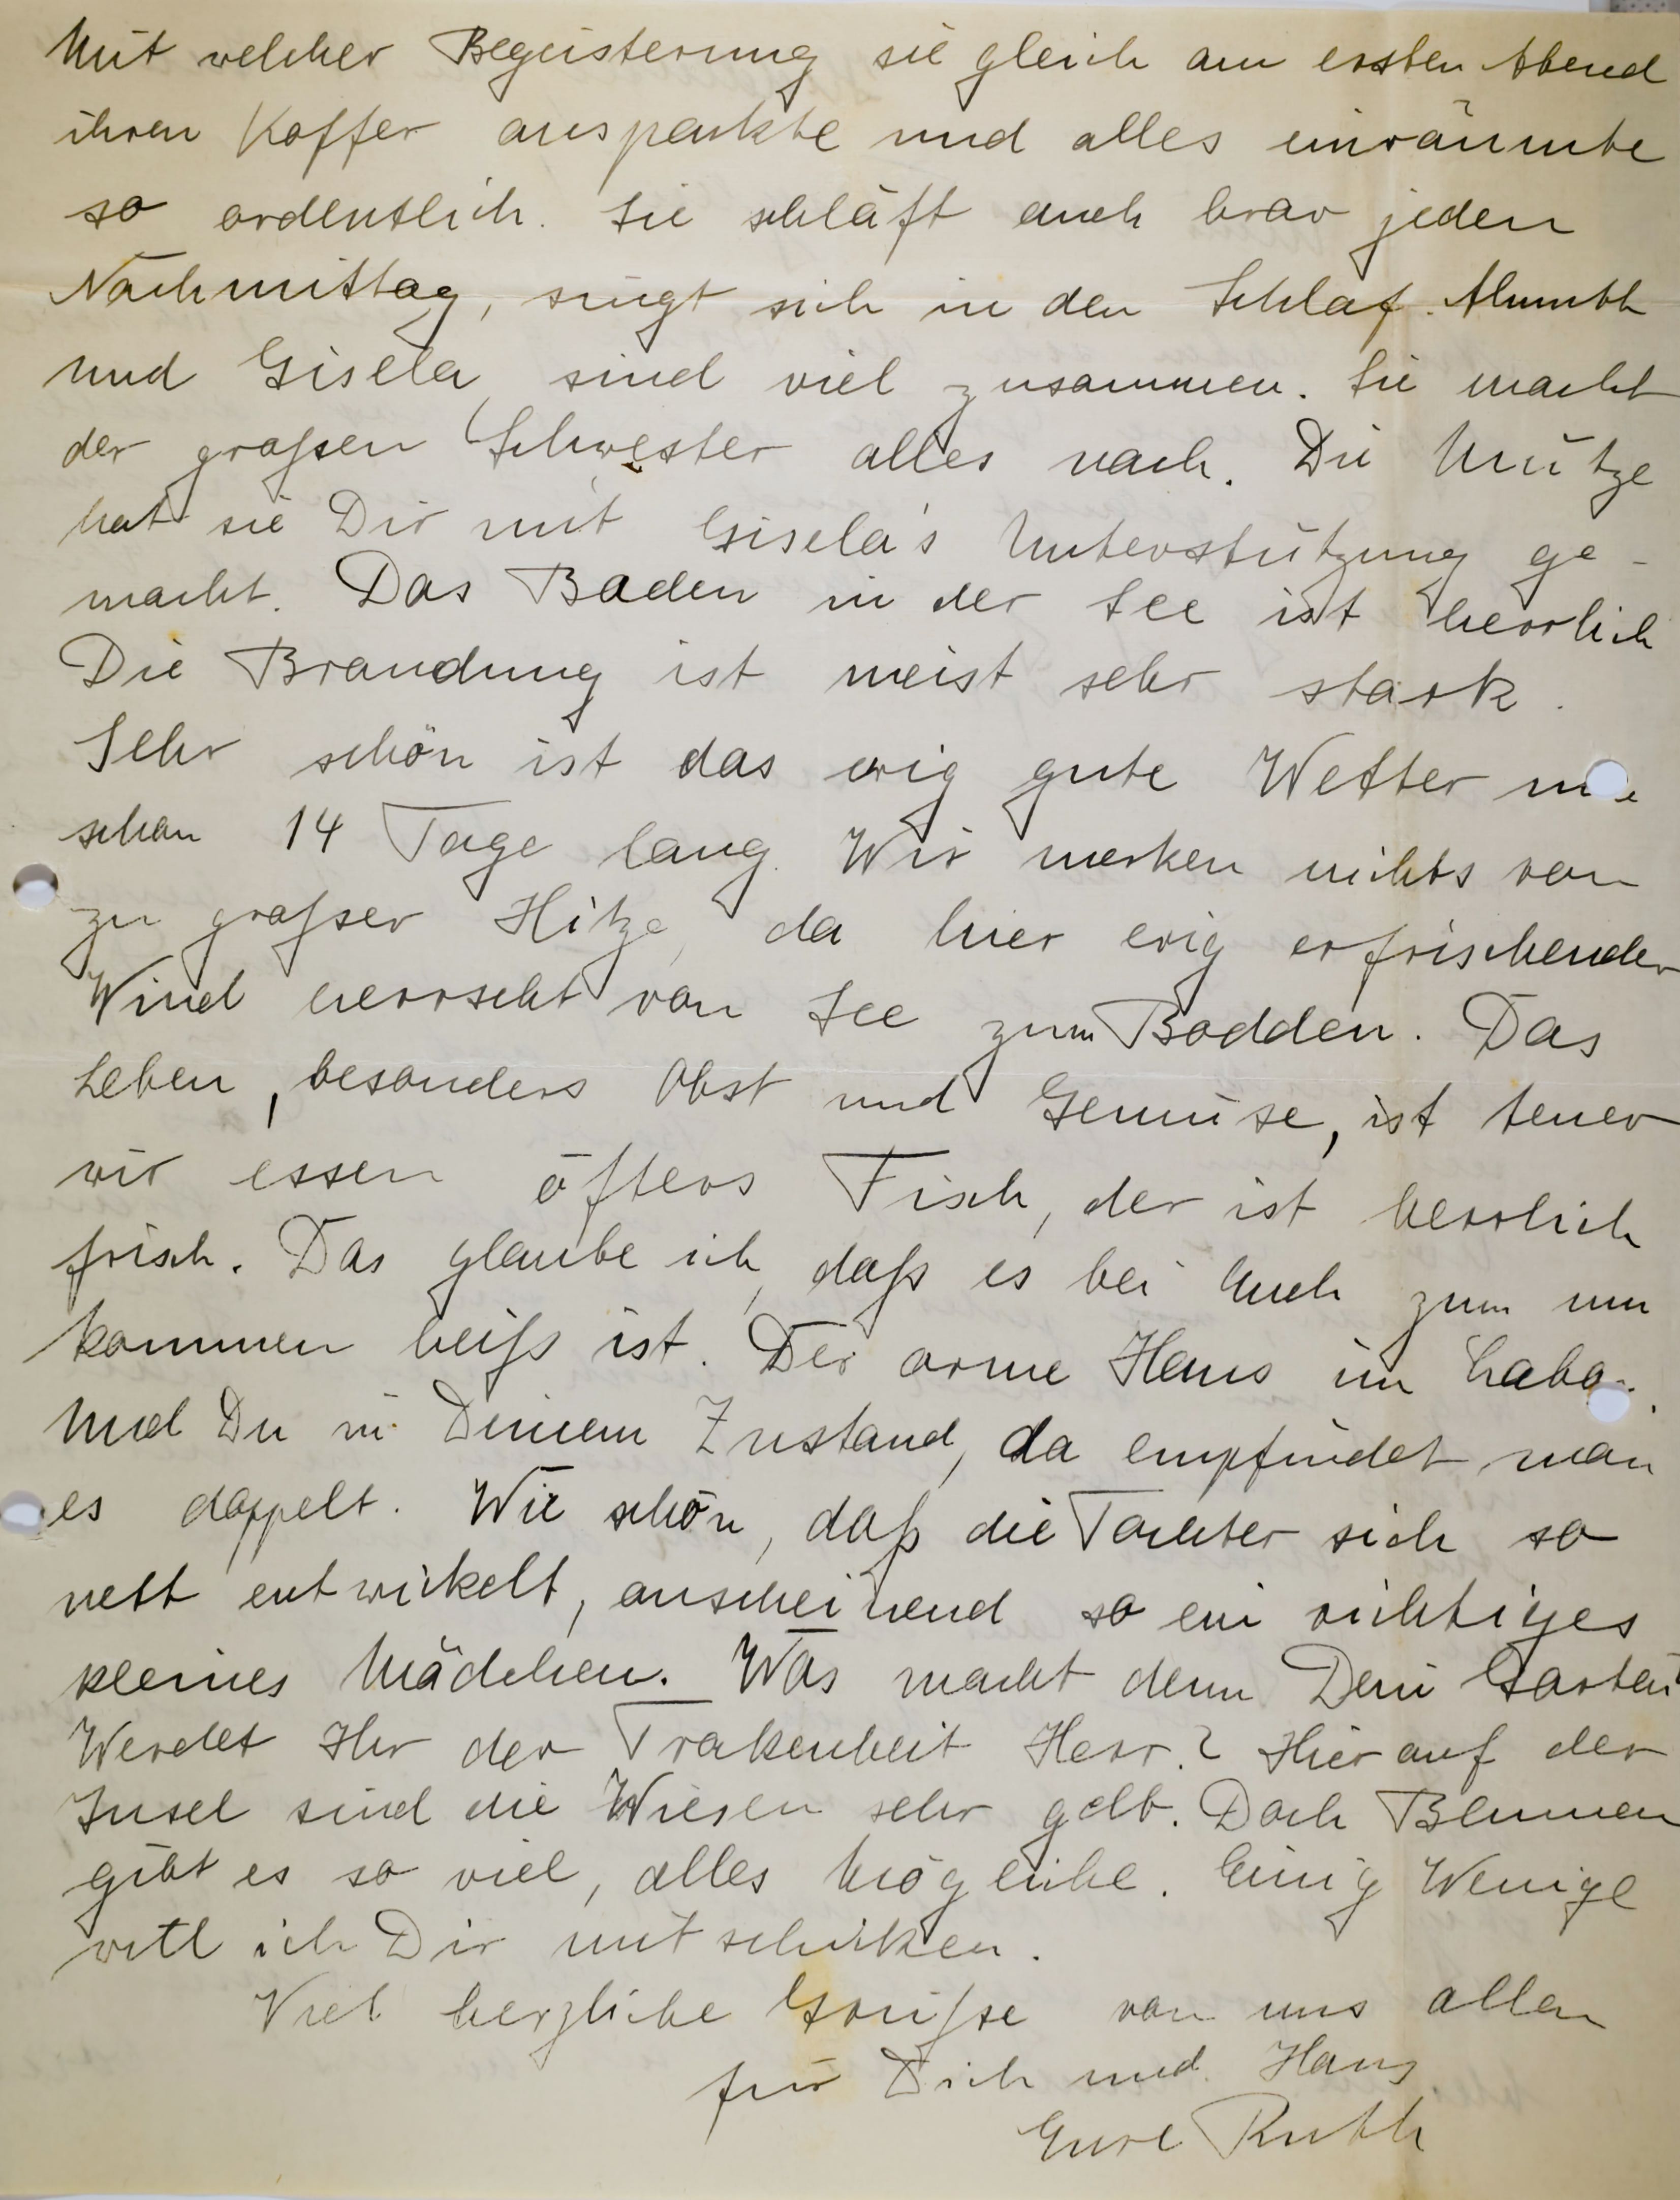 Mit welcher Begeisterung sie gleich am ersten Abend
ihren Koffer auspackte und alles einräumte
so ordentlich. Sie schläft auch brav jeden
Nachmittag, singt sich in den Schlaf. Almuth
und Gisela sind viel zusammen. Sie macht
der großen Schwester alles nach. Die Mütze
hat sie Dir mit Gisela's Unterstützung ge-
macht. Das Baden in der See ist herrlich
Die Brandung ist meist sehr stark.
Sehr schön ist das ewig gute Wetter
schon 14 Tage lang. Wir merken nichts von
zu großer Hitze, da hier ewig erfrischender
Wind herrscht von See zum Bodden. Das
Leben, besonders Obst und Gemüse, ist teuer
wir essen öfters Fisch, der ist herrlich
frisch. Das glaube ich, daß es bei Euch zum um
kommen heiß ist. Der arme Hans im
Und Du in Deinem Zustand, da empfindet man
es doppelt. Wie schön, daß die Tochter sich so
nett entwickelt, anscheinend so ein richtiges
kleines Mädchen. Was macht denn Dein Garten
Werdet Ihr der Trokenheit Herr? Hier auf der
Insel sind die Wiesen sehr gelb. Doch Blumen
gibt es so viel, alles Mögliche. Einig Wenige
will ich Dir mitschicken.
Viel herzliche Grüße von uns allen
für Dich und Hans
Eure Ruth